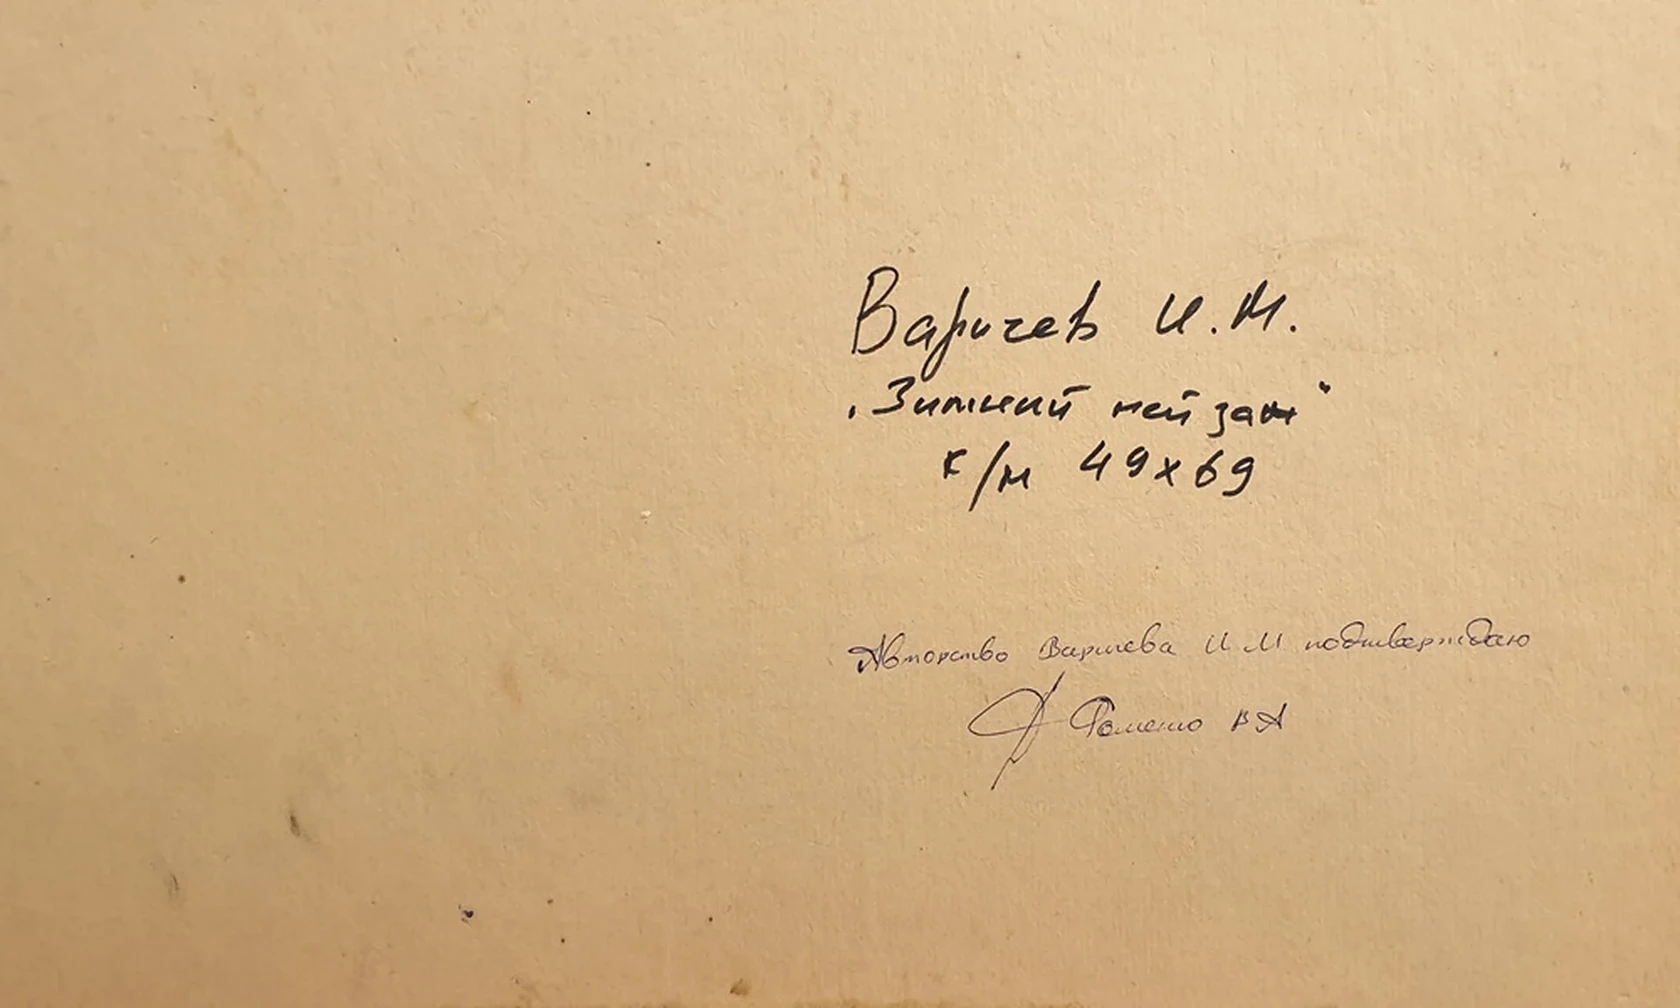 Варичев И.М.
„Зимний пейзаж"
к/м 49х69
Авторство Варичева И М подтверждаю
Фоменко В А